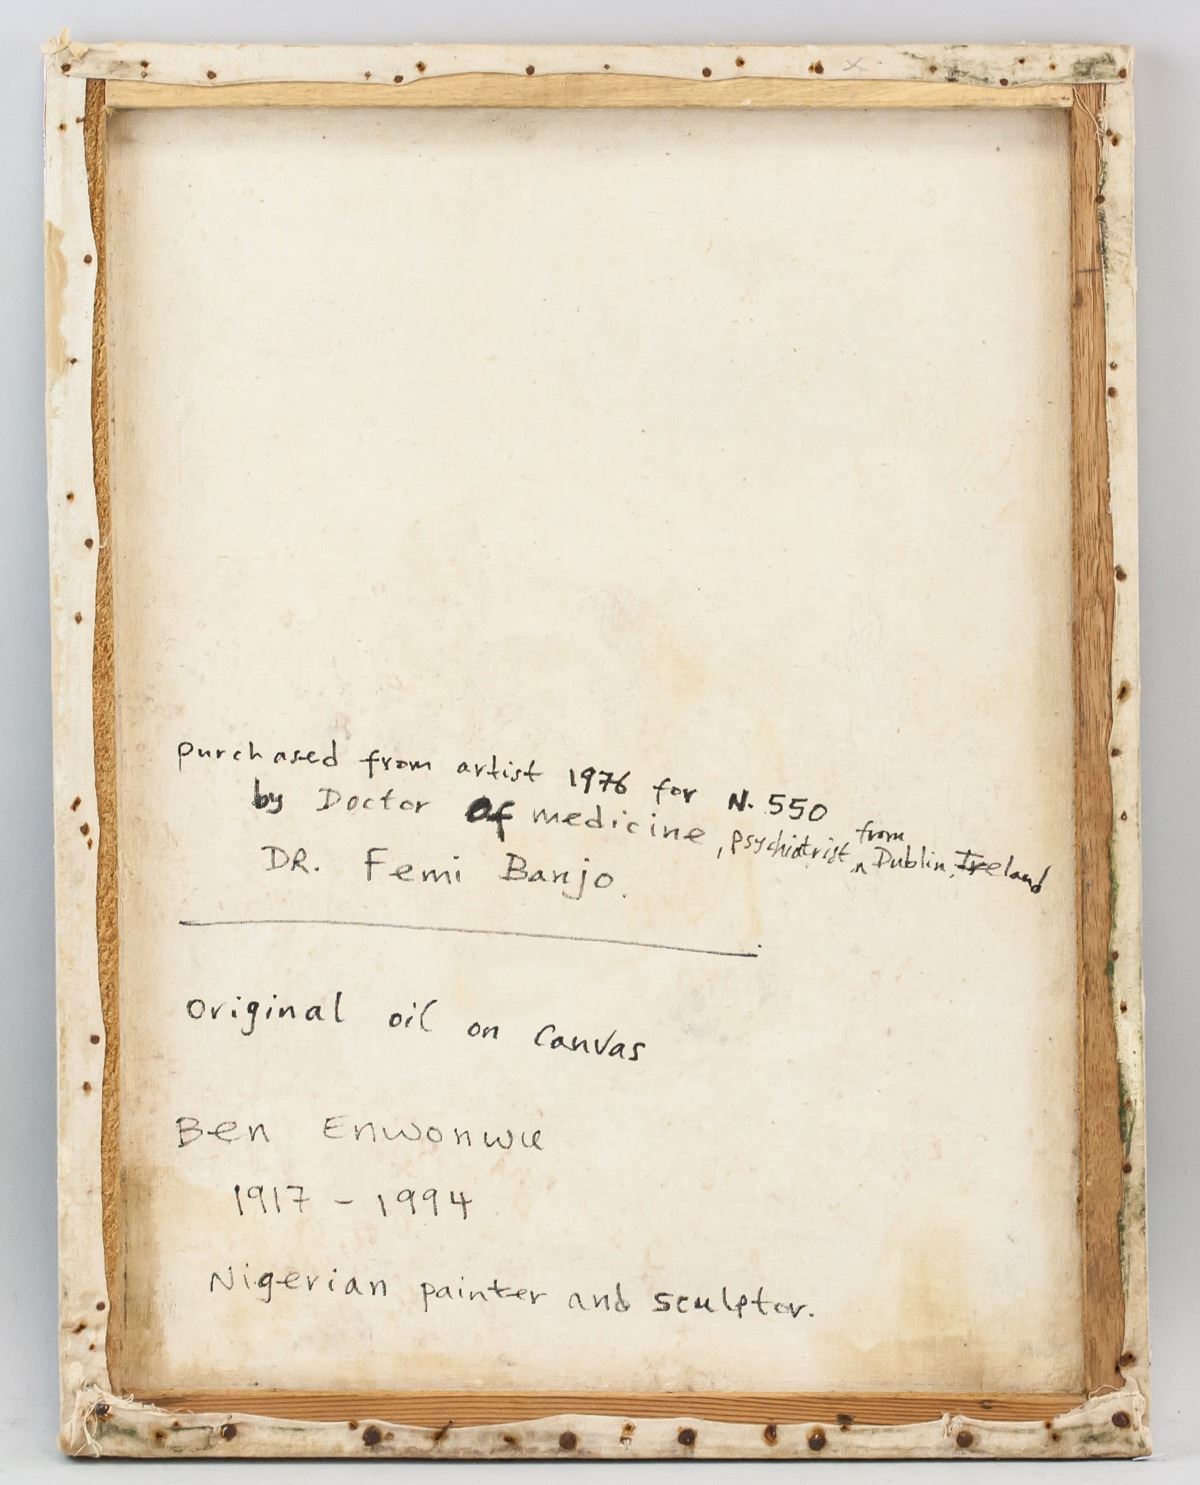 x
purchased from artist 1976 for N. 550
by Doctor Of medicine, psychiatrist ^ from Dublin, Ireland
DR. Femi Banjo.
Original oil on Canvas
Ben Enwonwu
1917 - 1994
Nigerian painter and sculptor.